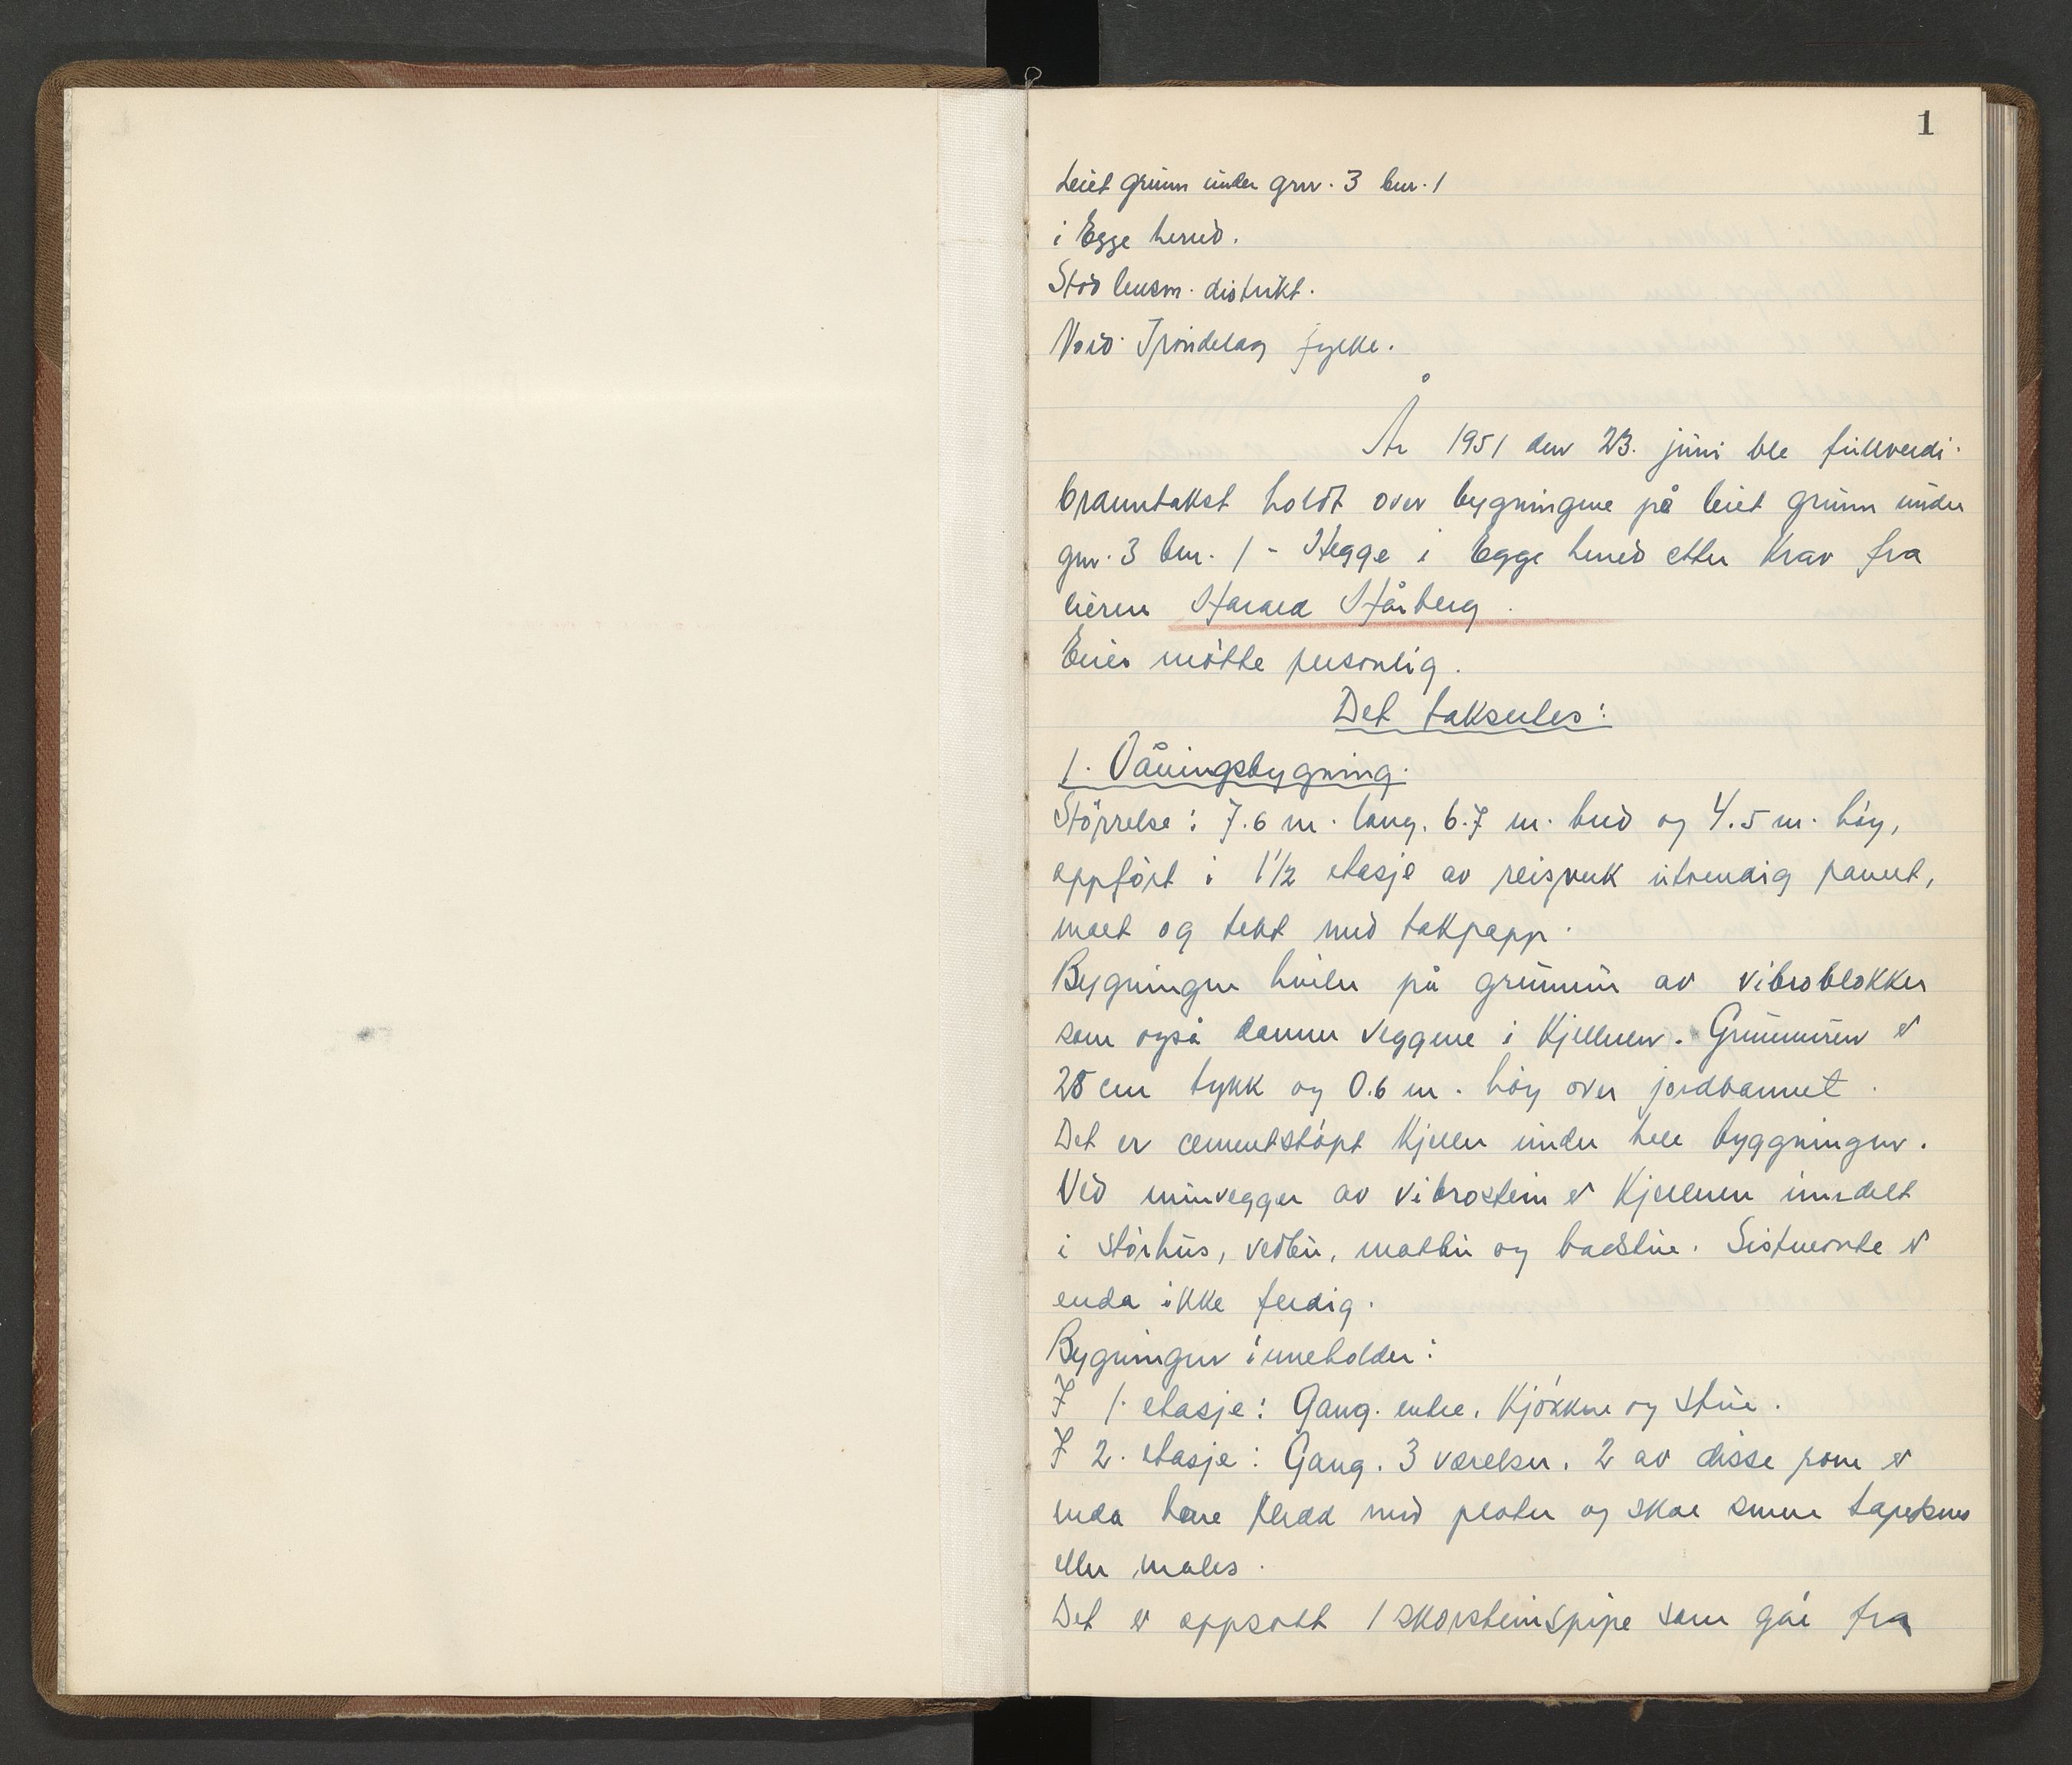 1
Leiet grunn under gnr. 3 bnr. 1
i Egge herred.
Stod lensm. distrikt.
Nord-Trøndelag fylke.
År 1951 den 23. juni ble fullverdi-
branntakst holdt over bygningene på leiet grunn under
gnr. 3 bnr. 1 - Hegge i Egge herred etter krav fra
eieren Harald Hårberg.
Eier møtte personlig.
Det takseres:
1. Våningsbygning.
Størrelse: 7.6 m. lang, 6.7 m. bred og 4.5 m. høy,
oppført i 1 1/2 etasje av reisverk utvendig panelt,
malt og tekt med takpapp.
Bygningen hviler på grunnmur av vibroblokker
som også danner veggene i kjelleren. Grunnmuren er
28 cm tykk og 0.6 m. høy over jordbannet.
Det er cementstøpt kjeller under hele byggningen.
Ved murvegger av vibrostein er kjelleren inndelt
i störhus, vedbu, matbu og badstue. Sistnevnte er
enda ikke ferdig.
Bygningen inneholder:
I 1. etasje: Gang, entre, kjøkken og stue.
I 2. etasje: Gang, 3 værelser, 2 av disse rom er
enda bare kledd med plater og skal senere tapetseres
eller males.
Det er oppsatt 1 skorsteinspipe som går fra